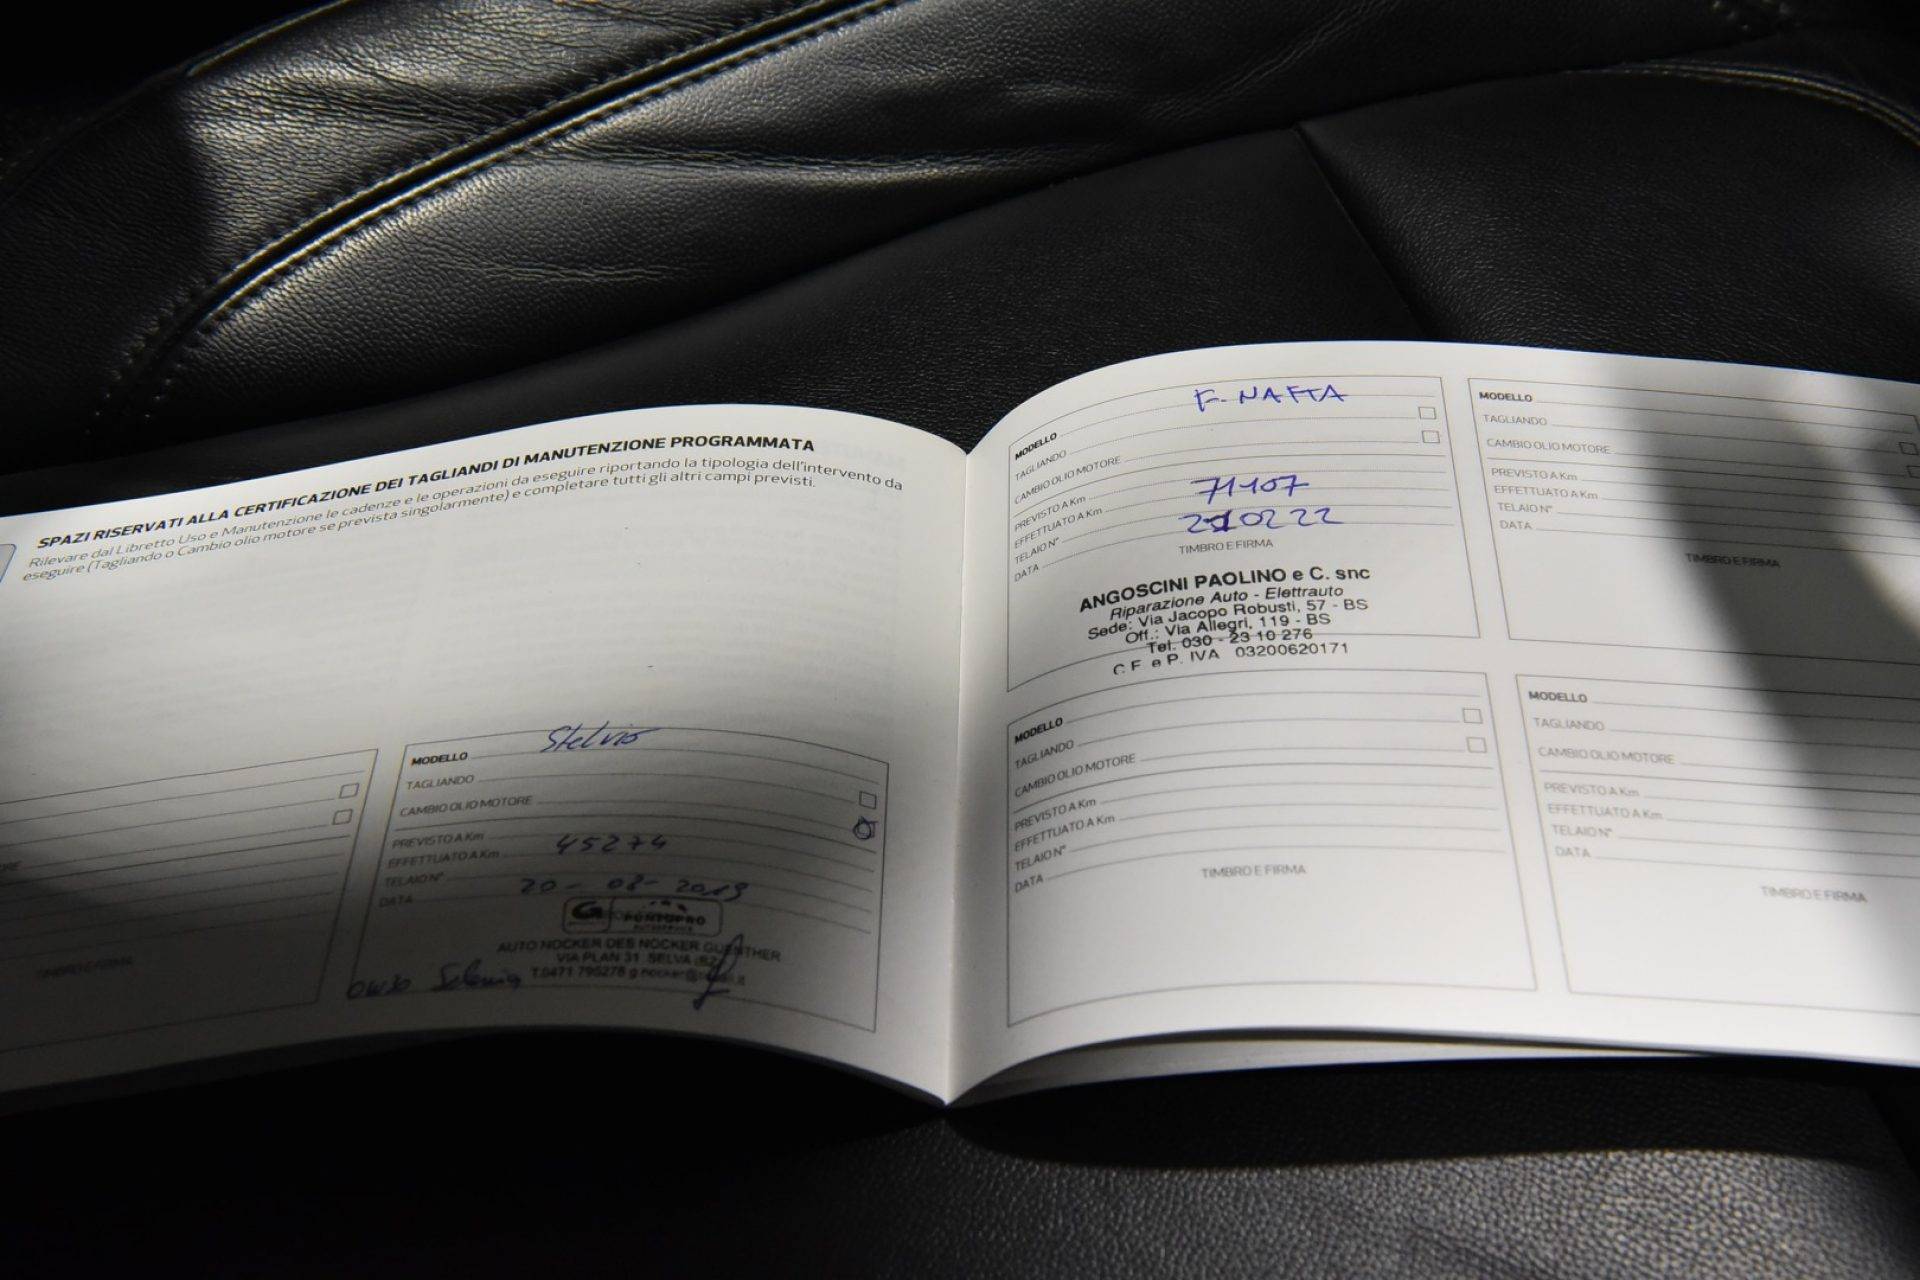 SPAZI RISERVATI ALLA CERTIFICAZIONE DEI TAGLIANDI DI MANUTENZIONE PROGRAMMATA
Rilevare dal Libretto Uso e Manutenzione le cadenze e le operazioni da eseguire riportando la tipologia dell'intervento da
eseguire (Tagliando o Cambio olio motore se prevista singolarmente) e completare tutti gli altri campi previsti.
TIMBRO E FIRMA
MODELLO Stelvio
TAGLIANDO
CAMBIO OLIO MOTORE
PREVISTO A Km
EFFETTUATO A Km 45274
TELAIO N°
DATA 20-08-2019
PUNTOPRO
AUTO NOCKER DES NOCKER GUENTHER
VIA PLAN 31 SELVA (BZ)
T.0471 795278
0W30 Selenia
MODELLO F. NAFTA
TAGLIANDO
CAMBIO OLIO MOTORE
PREVISTO A Km
EFFETTUATO A Km 71107
TELAIO N°
DATA 210222
TIMBRO E FIRMA
ANGOSCINI PAOLINO e C. snc
Riparazione Auto - Elettrauto
Sede: Via Jacopo Robusti, 57 - BS
Off.: Via Allegri, 119 - BS
Tel. 030 - 23 10 276
C.F. e P. IVA 03200620171
MODELLO
TAGLIANDO
CAMBIO OLIO MOTORE
PREVISTO A Km
EFFETTUATO A Km
TELAIO N°
DATA
TIMBRO E FIRMA
MODELLO
TAGLIANDO
CAMBIO OLIO MOTORE
PREVISTO A Km
EFFETTUATO A Km
TELAIO N°
DATA
TIMBRO E FIRMA
MODELLO
TAGLIANDO
CAMBIO OLIO MOTORE
PREVISTO A Km
EFFETTUATO A Km
TELAIO N°
DATA
TIMBRO E FIRMA